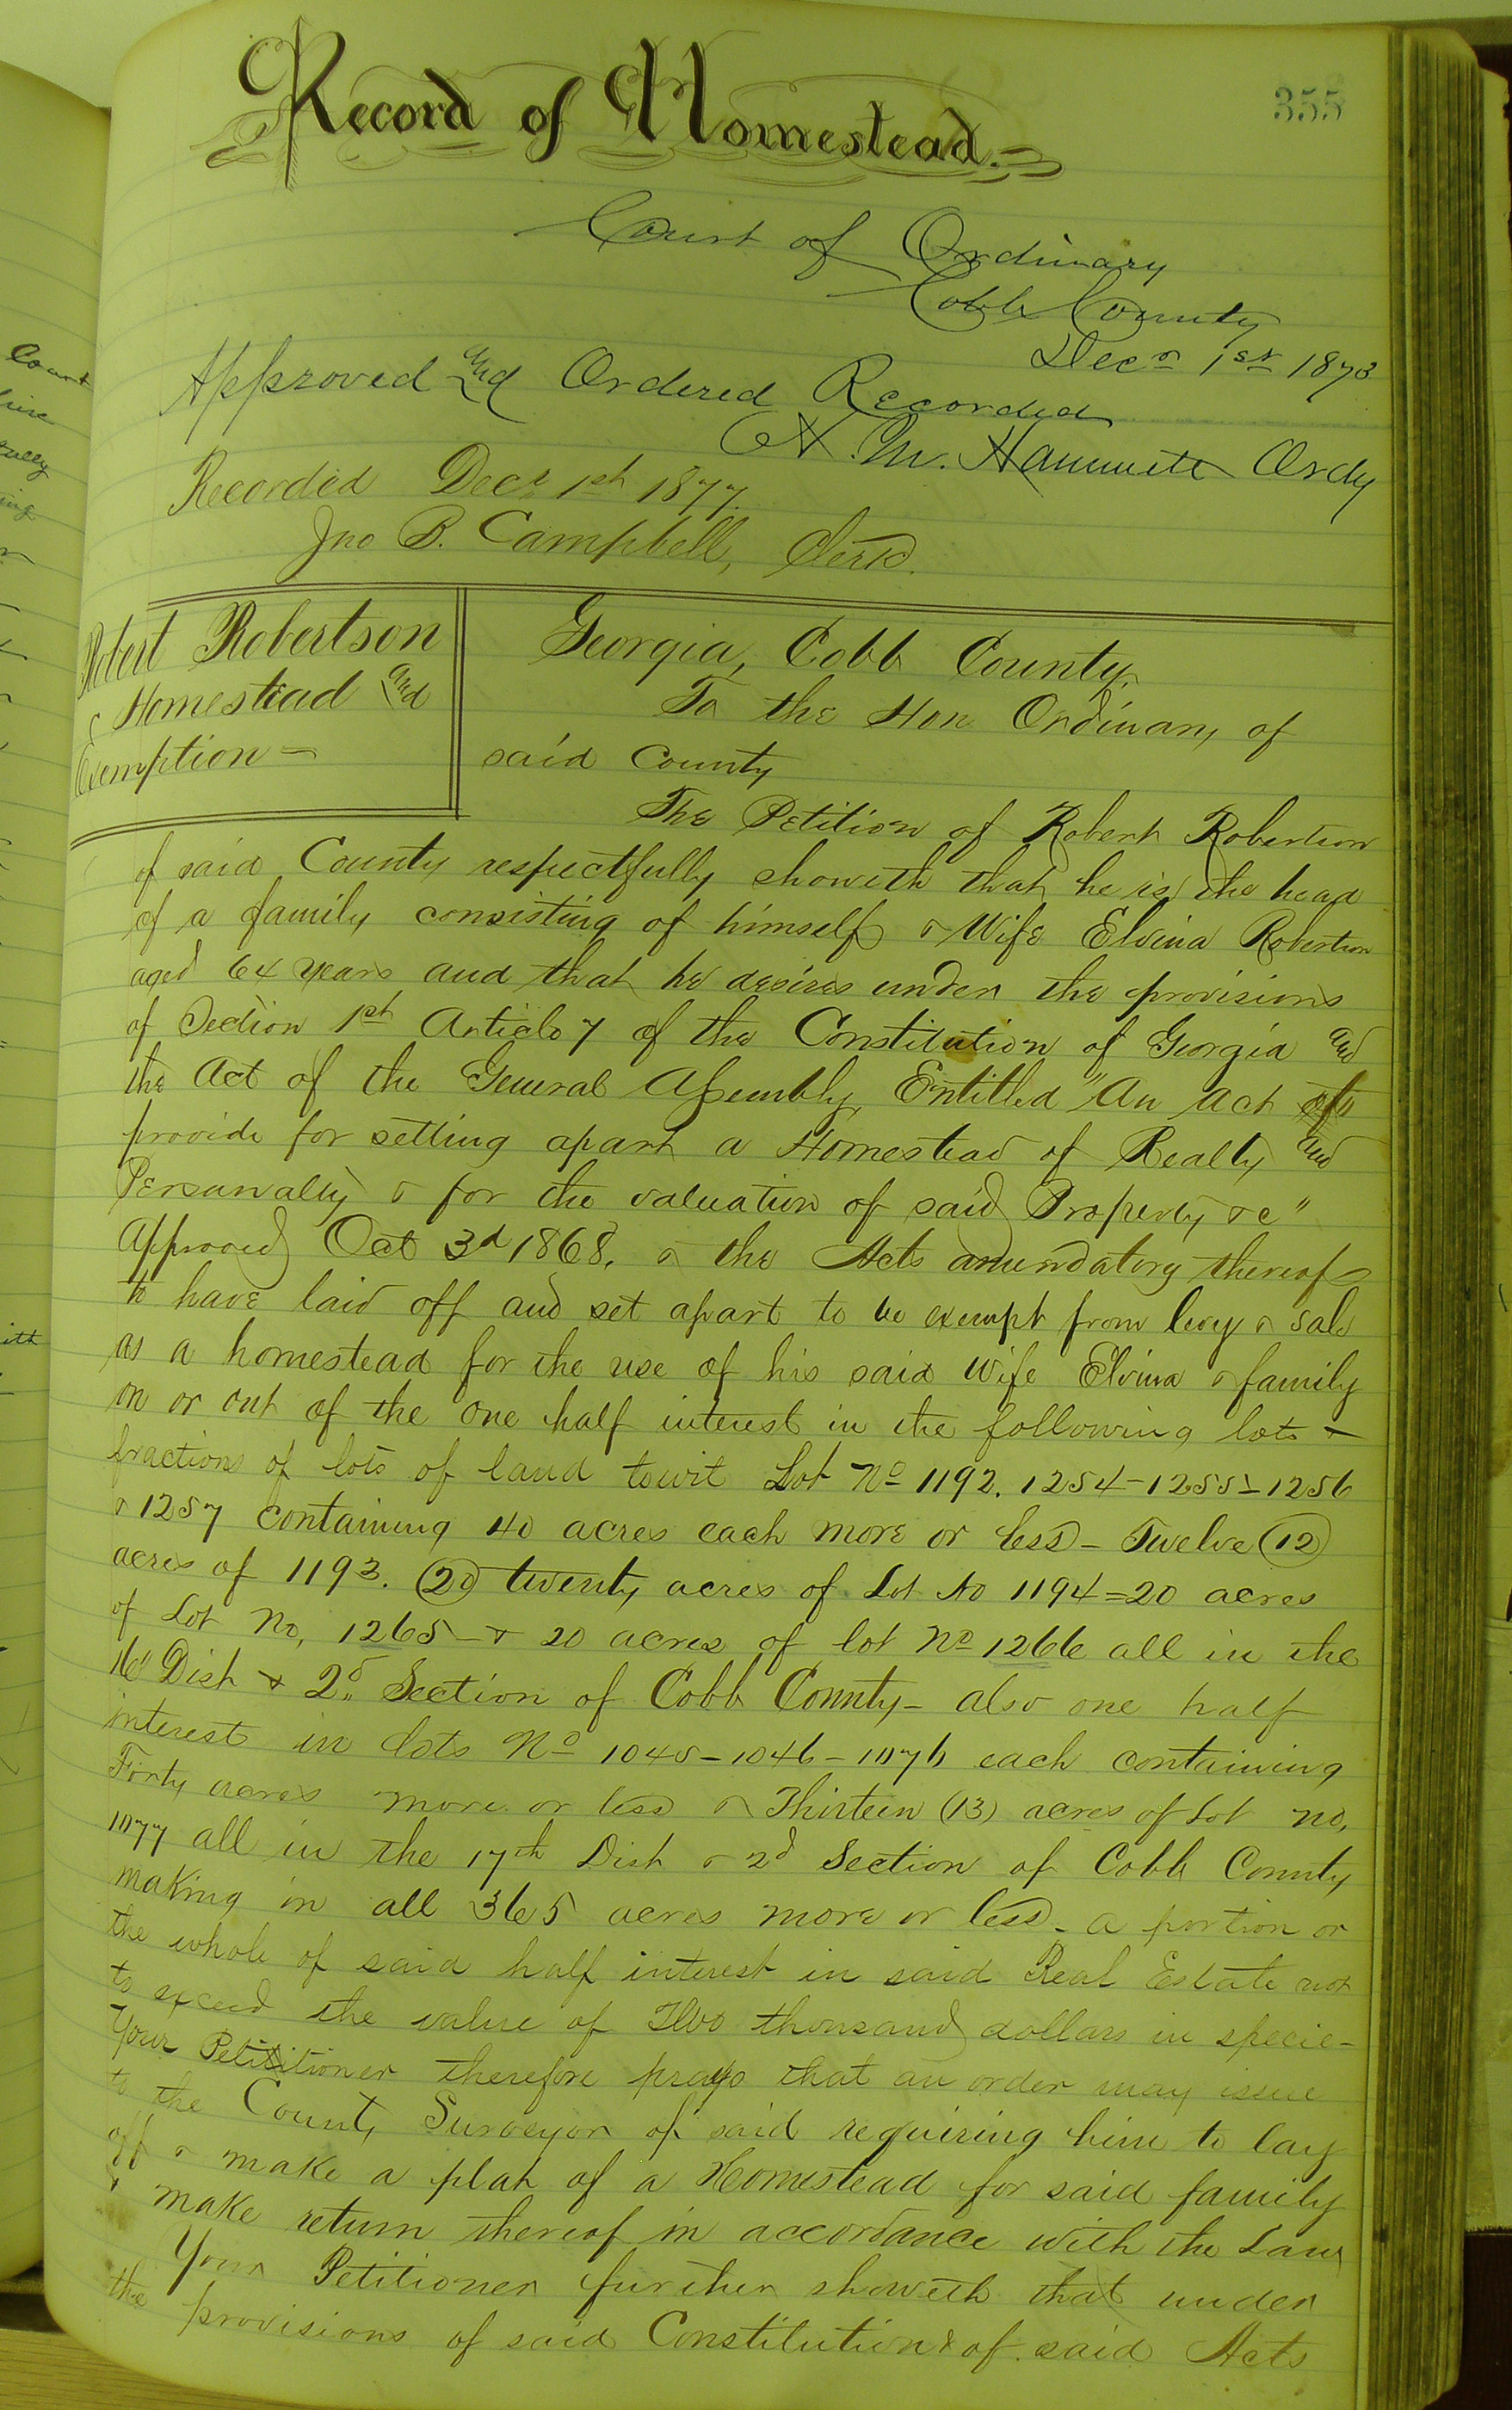 355
Record of Homestead.
Court of Ordinary
Cobb County
Decr 1st 1873
Approved and Ordered Recorded
H. M. Hammett Ordy
Recorded Decr 1st 1877.
Jno B. Campbell, Clerk.
Robert Robertson
Homestead and
Exemption
Georgia, Cobb County.
To the Hon Ordinary of
said County
The Petition of Robert Robertson
of said County respectfully showeth that he is the head
of a family consisting of himself & Wife Elvina Robertson
aged 64 years and that he desires under the provisions
of Section 1st Article 7 of the Constitution of Georgia and
the Act of the General Assembly Entitled "An Act to
provide for setting apart a Homestead of Realty and
Personalty & for the valuation of said Property &c"
Approved Oct 3d 1868. & the Acts amendatory thereof
to have laid off and set apart to be exempt from levy & sale
as a homestead for the use of his said Wife Elvina & family
on or out of the one half interest in the following lots &
fractions of lots of land towit Lot No 1192. 1254-1255-1256
& 1257 containing 40 acres each more or less - Twelve (12)
acres of 1193. (20) twenty acres of Lot No 1194=20 acres
of Lot No, 1265 - & 20 acres of lot No 1266 all in the
16" Dist & 2d Section of Cobb County - also one half
interest in lots No 1045-1046-1076 each containing
Forty acres more or less & Thirteen (13) acres of Lot no,
1077 all in the 17th Dist & 2d Section of Cobb County
making in all 365 acres more or less - a portion or
the whole of said half interest in said Real Estate not
to exceed the value of Two thousand dollars in specie -
Your Petitioner therefore prays that an order may issue
to the County Surveyor of said requiring him to lay
off & make a plat of a Homestead for said family
& make return thereof in accordance with the Law
Your Petitioner further showeth that under
the provisions of said Constitution & of said Acts
Court
fully
ing
ith